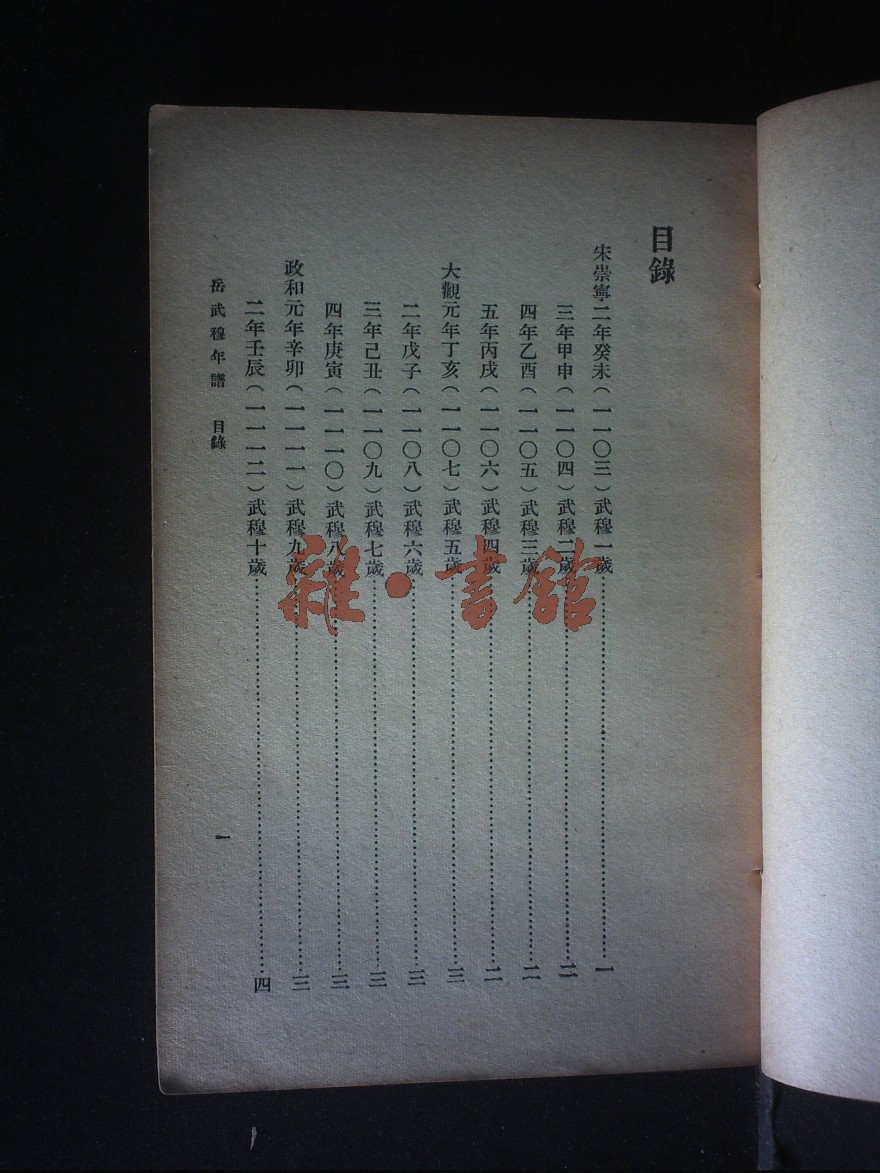 目錄
宋崇寧二年癸未（一一〇三）武穆一歲……一
三年甲申（一一〇四）武穆二歲……二
四年乙酉（一一〇五）武穆三歲……二
五年丙戌（一一〇六）武穆四歲……二
大觀元年丁亥（一一〇七）武穆五歲……三
二年戊子（一一〇八）武穆六歲……三
三年己丑（一一〇九）武穆七歲……三
四年庚寅（一一一〇）武穆八歲……三
政和元年辛卯（一一一一）武穆九歲……三
二年壬辰（一一一二）武穆十歲……四
岳武穆年譜 目錄
一
雜·書館